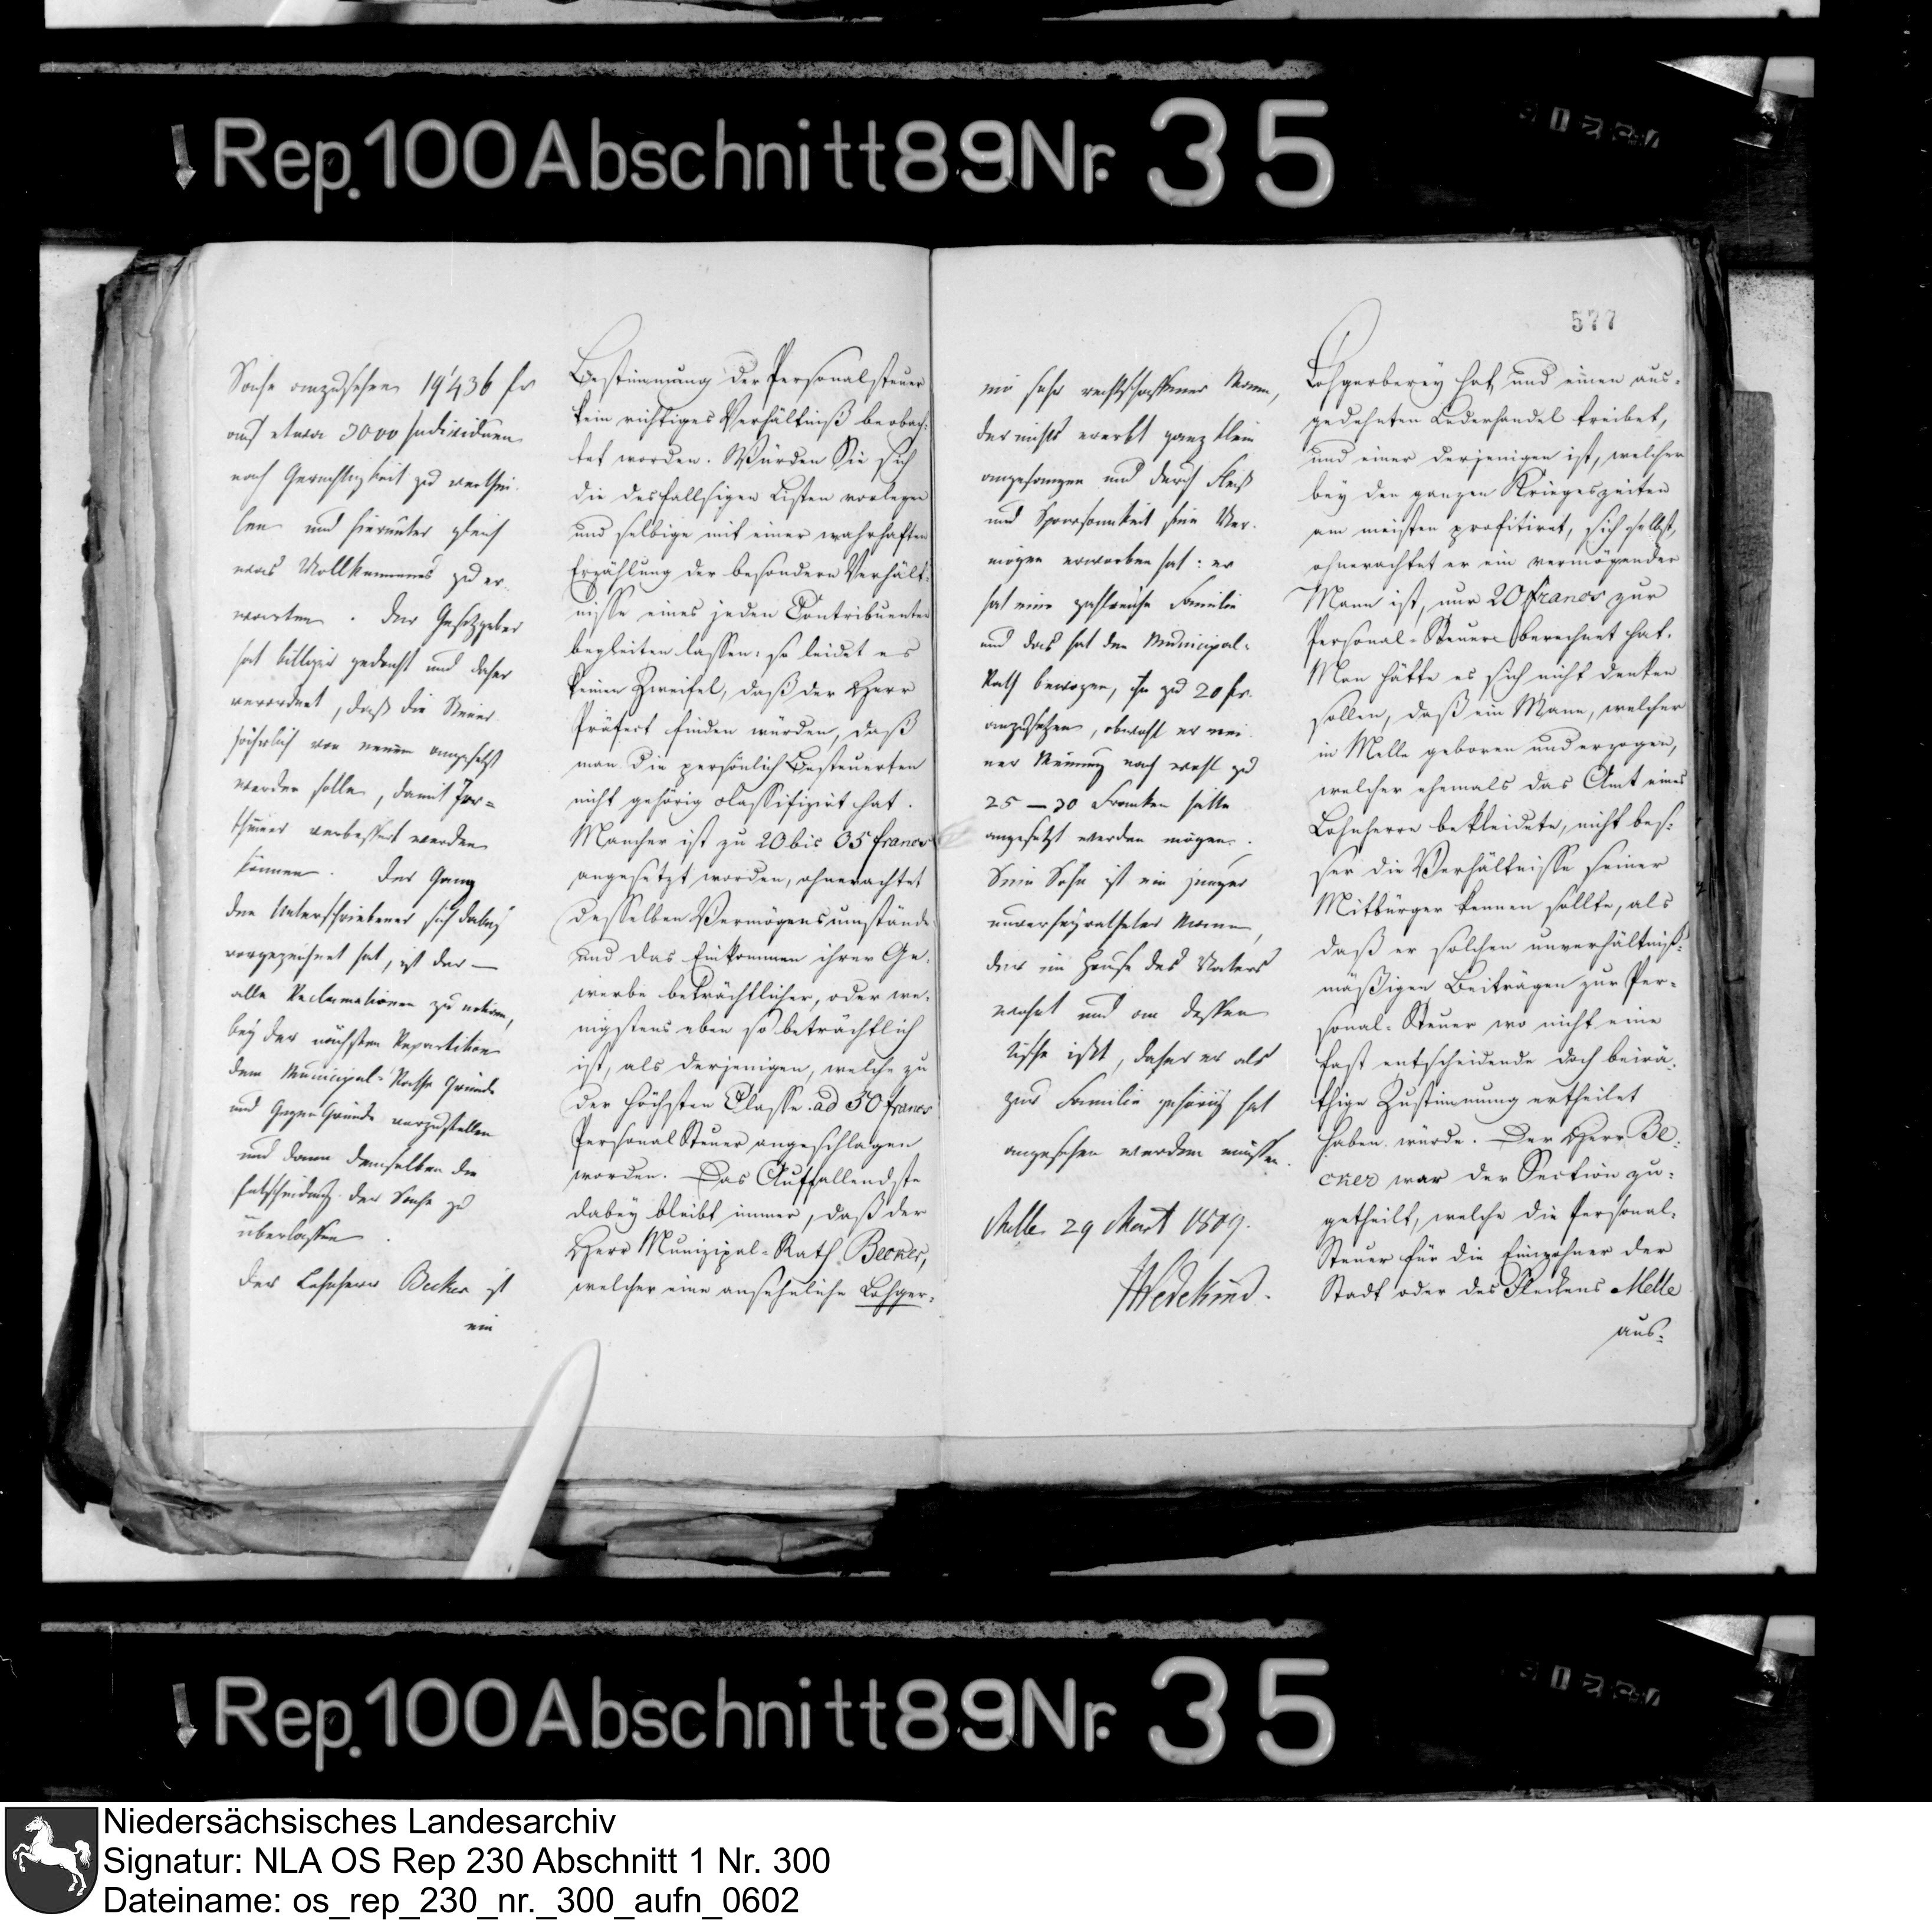 Rep. 100 Abschnitt 89 Nr. 35
577
Sache anzusehen 19'436 fr
auf etwa 3000 Individuen
nach Gerechtigkeit zu verthei-
len und hierunter gleich
was Vollkommenes zu er-
warten. Der Gesetzgeber
hat billiger gedacht und daher
verordnet, daß die Steuer
jährlich von neuem angesetzt
werden solle, damit Irr=
thümer verbessert werden
können. Der Gang
den Unterschriebener sich dabey
vorgezeichnet hat, ist der —
alle Reclamationen zu notiren,
bey der nächsten Repartition
dem Municipal-Rathe Gründe
und Gegen Gründe vorzustellen
und dann demselben die
Entscheidung der Sache zu
überlassen.
Der Lohnherr Becker ist
ein
Bestimmung der Personalsteuer
kein richtiges Verhältniß beobach-
tet worden. Würden Sie sich
die desfallsigen Listen vorlegen
und selbige mit einer wahrhaften
Erzählung der besondern Verhält-
nisse eines jeden Contribuenten
begleiten lassen: so leidet es
keinen Zweifel, daß der Herr
Präfect finden würden, daß
man die persönlich Besteuerten
nicht gehörig classifizirt hat.
Mancher ist zu 20 bis 35 francs
angesetzt worden, ohnerachtet
desselben Vermögensumstände
und das Einkommen ihrer Ge-
werbe beträchtlicher, oder we-
nigstens eben so beträchtlich
ist, als derjenigen, welche zu
der höchsten Classe ad 50 francs
Personal Steuer angeschlagen
worden. Das Auffallendste
dabey bleibt immer, daß der
Herr Munizipal-Rath Becker,
welcher eine ansehnliche Lohger-
ein sehr rechtschaffener Mann,
der nichts ererbt ganz klein
angefangen und durch Fleiß
und Sparsamkeit sein Ver-
mögen erworben hat: er
hat eine zahlreiche Familie
und das hat den Municipal-
Rath bewogen, ihn zu 20 fr.
anzusetzen, obwohl er mei-
ner Meinung nach wohl zu
25 — 30 Franken hätte
angesetzt werden mögen.
Sein Sohn ist ein junger
unverheyratheter Mann,
der im Hause des Vaters
wohnt und an dessen
Tische ißt, daher er als
zur Familie gehörig hat
angesehen werden müssen.
Melle 29 Mart 1809.
Wedekind.
Lohgerberey hat und einen aus-
gedehnten Lederhandel treibet,
und einer derjenigen ist, welcher
bey den ganzen Kriegeszeiten
am meisten profitiret, sich selbst,
ohnerachtet er ein vermögender
Mann ist, nur 20 francs zur
Personal-Steuer berechnet hat.
Man hätte es sich nicht denken
sollen, daß ein Mann, welcher
in Melle geboren und erzogen,
welcher ehemals das Amt eines
Lohnherrn bekleidete, nicht bes-
ser die Verhältnisse seiner
Mitbürger kennen sollte, als
daß er solchen unverhältniß-
mäßigen Beiträgen zur Per-
sonal-Steuer wo nicht eine
fast entscheidende doch beirä-
thige Zustimmung ertheilet
haben würde. Der Herr Be-
cker war der Section zu-
getheilt, welche die Personal-
Steuer für die Einwohner der
Stadt oder des Fleckens Melle
aus-
Rep. 100 Abschnitt 89 Nr. 35
Niedersächsisches Landesarchiv
Signatur: NLA OS Rep 230 Abschnitt 1 Nr. 300
Dateiname: os_rep_230_nr._300_aufn_0602